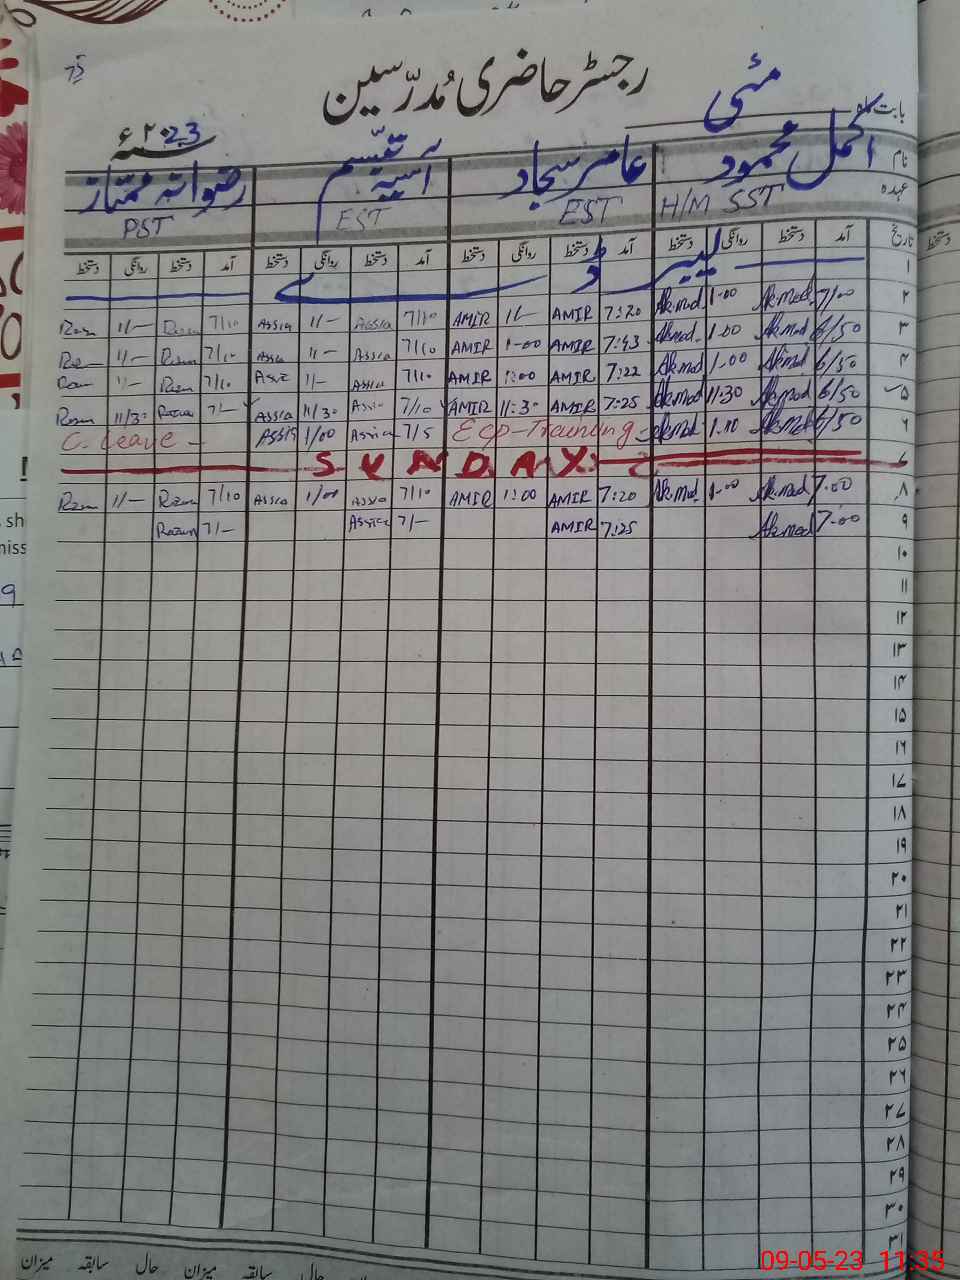 75
رجسٹر حاضری مُدرّسین
بابت ماہ مئی
سنہ ۲۰23ء
نام اکمل محمود عامر سجاد آسیہ تبسم رضوانہ ممتاز
عہدہ H/M SST EST EST PST
تاریخ آمد دستخط روانگی دستخط آمد دستخط روانگی دستخط آمد دستخط روانگی دستخط آمد دستخط روانگی دستخط
۱ لیبر ڈے
۲ 7/00 Akmad 1.00 Akmad 7:20 AMIR 1/- AMIR 7/10 Assia 1/- Assia 7/10 Rizun 1/- Rizun
۳ 6/50 Akmad 1.00 Akmad 7:43 AMIR 1-00 AMIR 7/10 Assia 1/- Assia 7/10 Rizun 1/-
۴ 6/50 Akmad 1.00 Akmad 7:22 AMIR 1:00 AMIR 7/10 Assia 1/- Assia 7/10 Rizun 1/-
۵ 6/50 Akmad 11/30 Akmad 7:25 AMIR 11:30 AMIR 7/10 Assia 11/30 Assia 7/- Rizun 11/30 Rizun
۶ 6/50 Akmad 1.10 Akmad Training 7/5 Assia 1/00 Assia C. Leave
۷ SUNDAY
۸ 7.00 Akmad 1.00 Akmad 7:20 AMIR 1:00 AMIR 7/10 Assia 1/00 Assia 7/10 Rizun 1/- Rizun
۹ 7.00 Akmad 7:25 AMIR 7/- Assia 7/- Rizun
۱۰
۱۱
۱۲
۱۳
۱۴
۱۵
۱۶
۱۷
۱۸
۱۹
۲۰
۲۱
۲۲
۲۳
۲۴
۲۵
۲۶
۲۷
۲۸
۲۹
۳۰
۳۱
حال سابقہ میزان حال سابقہ میزان
09-05-23 11:35